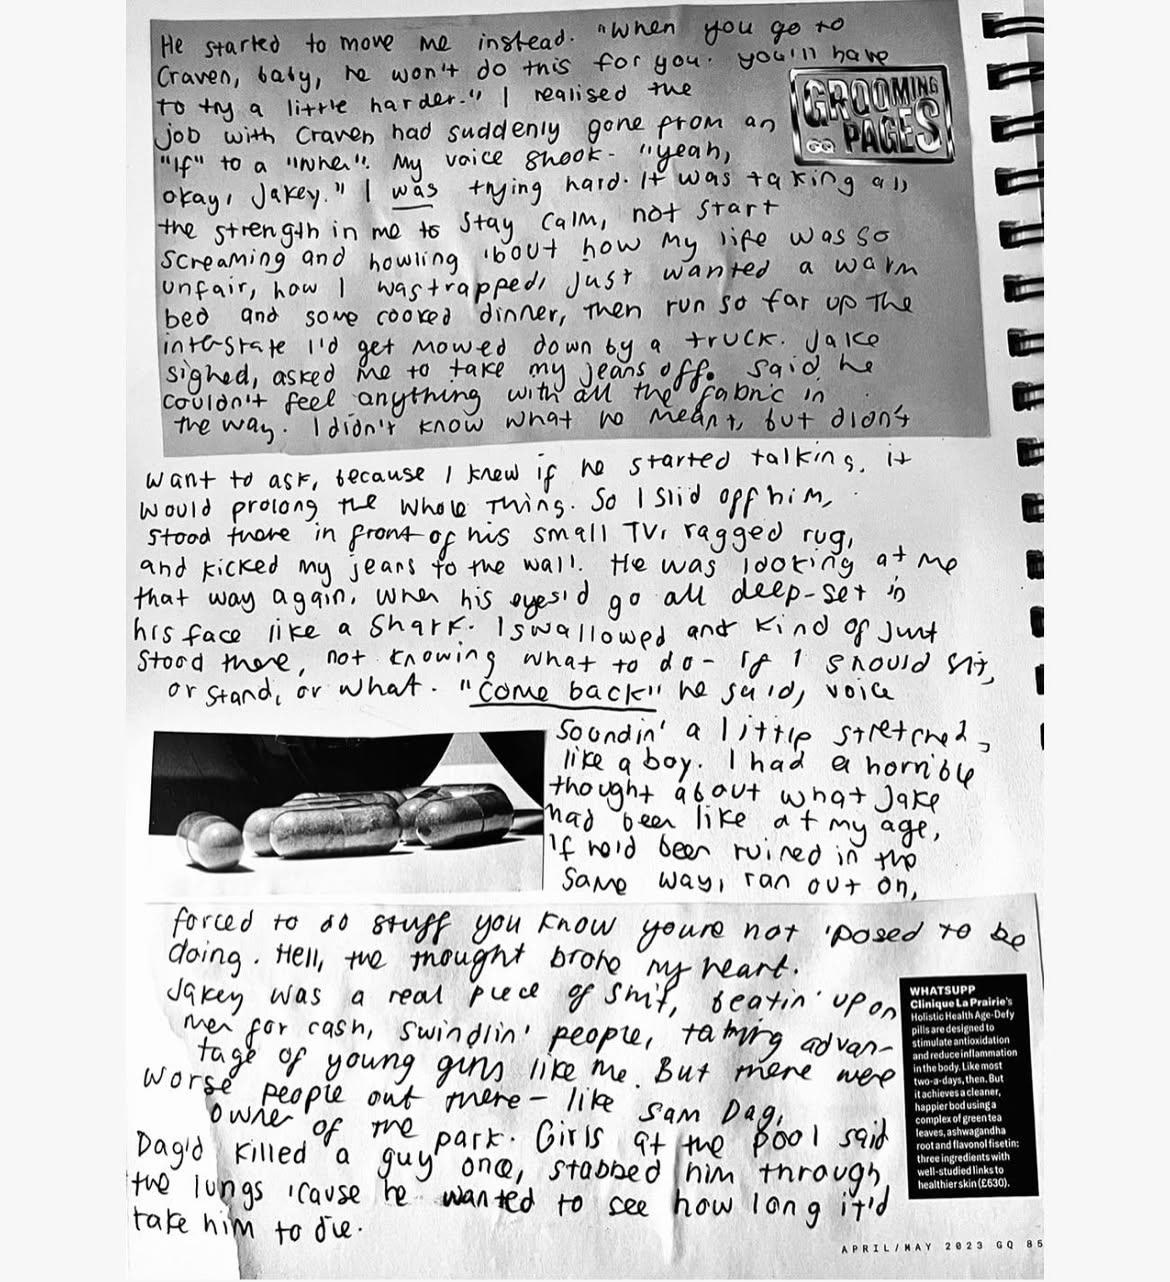 He started to move me instead. "when you go to
Craven, baby, he won't do this for you. you'll have
to try a little harder." I realised the
job with Craven had suddenly gone from an
"If" to a "when". My voice shook- "yeah,
okay, Jakey." I was trying hard. It was taking all
the strength in me to stay calm, not start
screaming and howling 'bout how my life was so
unfair, how I was trapped, just wanted a warm
bed and some cooked dinner, then run so far up the
interstate I'd get mowed down by a truck. Jake
sighed, asked me to take my jeans off. Said he
couldn't feel anything with all the fabric in
the way. I didn't know what he meant, but didn't
want to ask, because I knew if he started talking, it
would prolong the whole thing. So I slid off him,
stood there in front of his small TV, ragged rug,
and kicked my jeans to the wall. He was looking at me
that way again, when his eyes'd go all deep-set in
his face like a shark. I swallowed and kind of just
stood there, not knowing what to do- if I should sit,
or stand, or what. "come back" he said, voice
soundin' a little stretched,
like a boy. I had a horrible
thought about what Jake
had been like at my age,
If he'd been ruined in the
same way, ran out on,
forced to do stuff you know youre not 'posed to be
doing. Hell, the thought broke my heart.
Jakey was a real piece of shit, beatin' up on
men for cash, swindlin' people, taking advan-
tage of young girls like me. But there were
worse people out there- like Sam Dag,
owner of the park. Girls at the pool said
Dag'd killed a guy once, stabbed him through
the lungs 'cause he wanted to see how long it'd
take him to die.
GROOMING
GQ PAGES
WHATSUPP
Clinique La Prairie's
Holistic Health Age-Defy
pills are designed to
stimulate antioxidation
and reduce inflammation
in the body. Like most
two-a-days, then. But
it achieves a cleaner,
happier bod using a
complex of green tea
leaves, ashwagandha
root and flavonol fisetin:
three ingredients with
well-studied links to
healthier skin (£630).
APRIL/MAY 2023 GQ 85